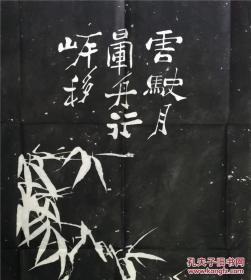 雲駛月
暈舟行
岸移
孔夫子旧书网